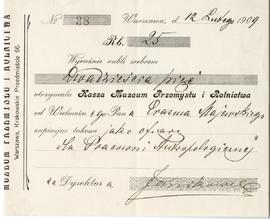 MUZEUM PRZEMYSŁU I ROLNICTWA
Warszawa, Krakowskie Przedmieście 66.
№ 38 Warszawa, d. 12 Lutego 1909
Rb. 25
Wyraźnie rubli srebrem
Dwadzieścia pięć
otrzymała Kassa Muzeum Przemysłu i Rolnictwa
od Wielmożnego Pana Erazma Majewskiego
zapisując takowe jako ofiarę
dla Pracowni Antropologicznej
za Dyrektora